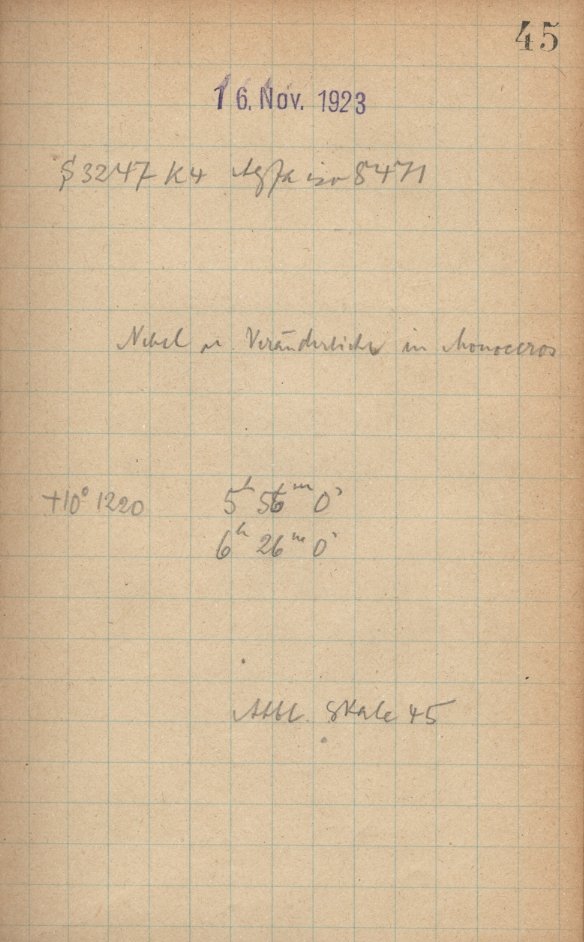 45
16. Nov. 1923
S3247 K4 Agfa iso 8471
Nebel u. Veränderliche in Monoceros
+10° 1220 5h 56m 0s
6h 26m 0s
Skale 45